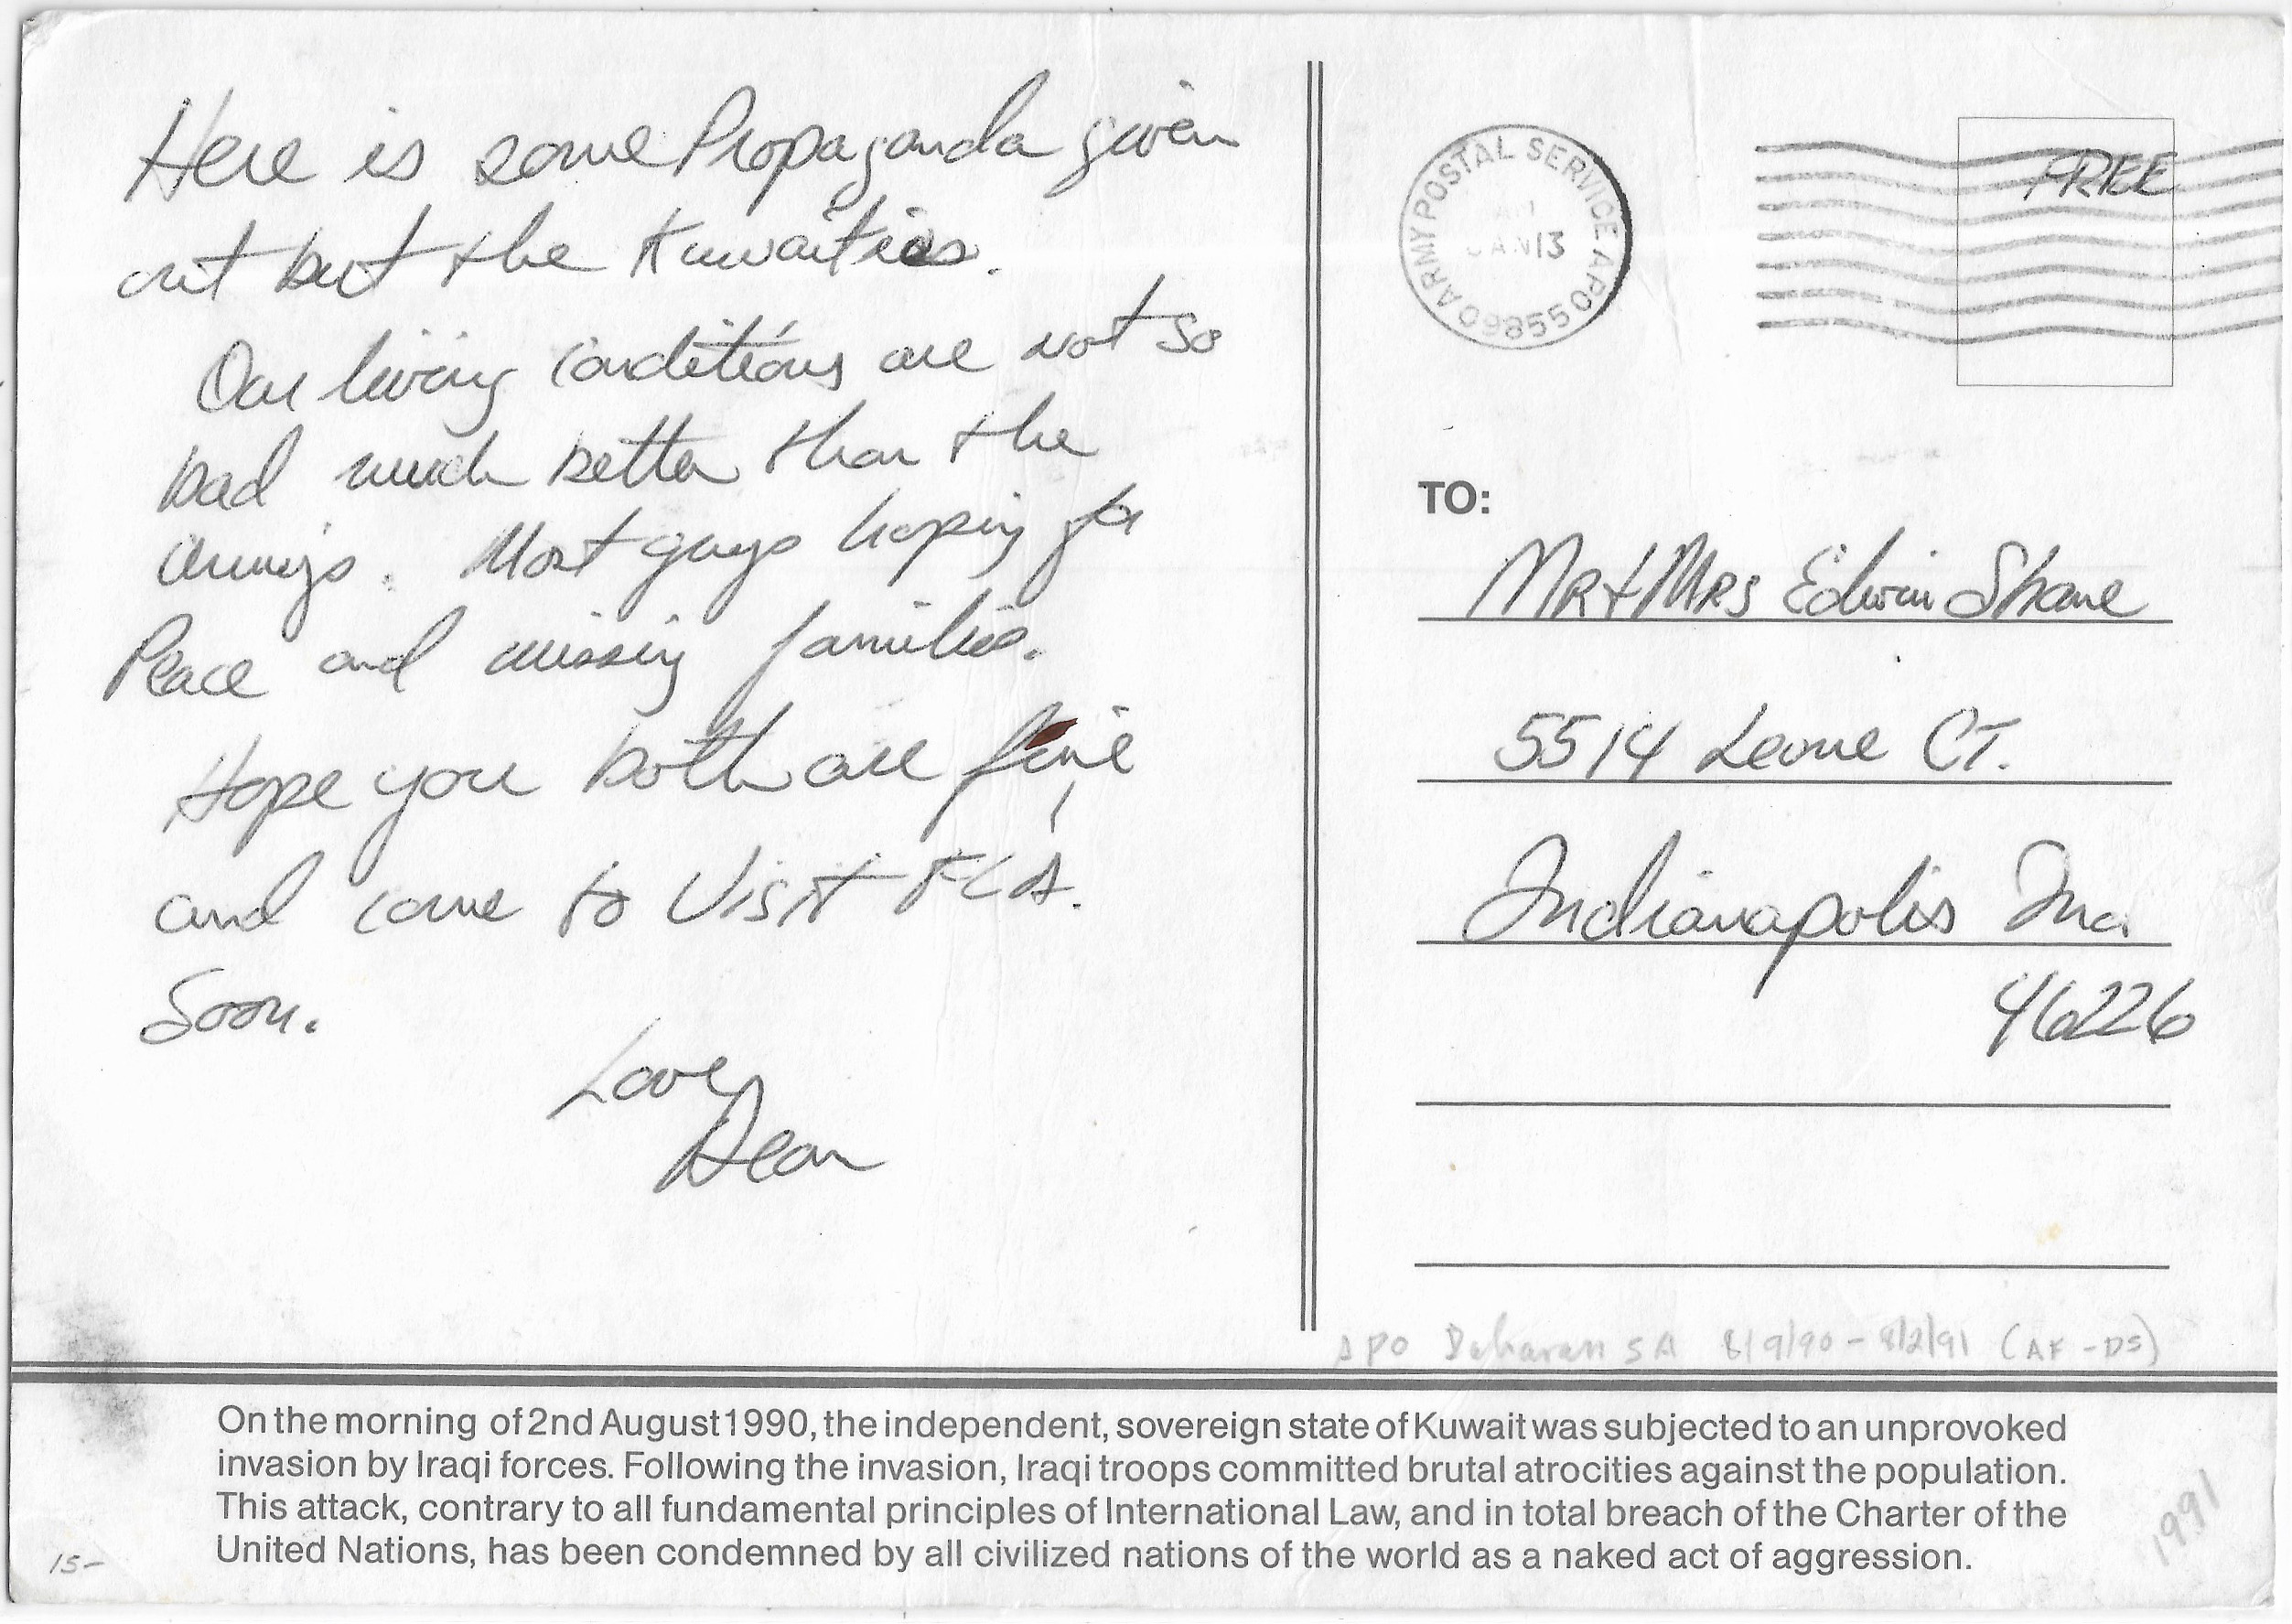 Here is some Propaganda given
out but the Kuwaities.
Our living conditions are not so
bad much better than the
Armys. Most guys hoping for
Peace and missing families.
Hope you both are fine,
and come to Visit FLA.
Soon.
Love,
Dean
ARMY POSTAL SERVICE APO
09855
AM
JAN 13
FREE
TO:
MR + MRS Edwin Shane
5514 Leone CT.
Indianapolis Ind.
46226
APO Daharan SA 8/9/90 - 8/2/91 (AF - DS)
On the morning of 2nd August 1990, the independent, sovereign state of Kuwait was subjected to an unprovoked
invasion by Iraqi forces. Following the invasion, Iraqi troops committed brutal atrocities against the population.
This attack, contrary to all fundamental principles of International Law, and in total breach of the Charter of the
United Nations, has been condemned by all civilized nations of the world as a naked act of aggression.
15-
1991